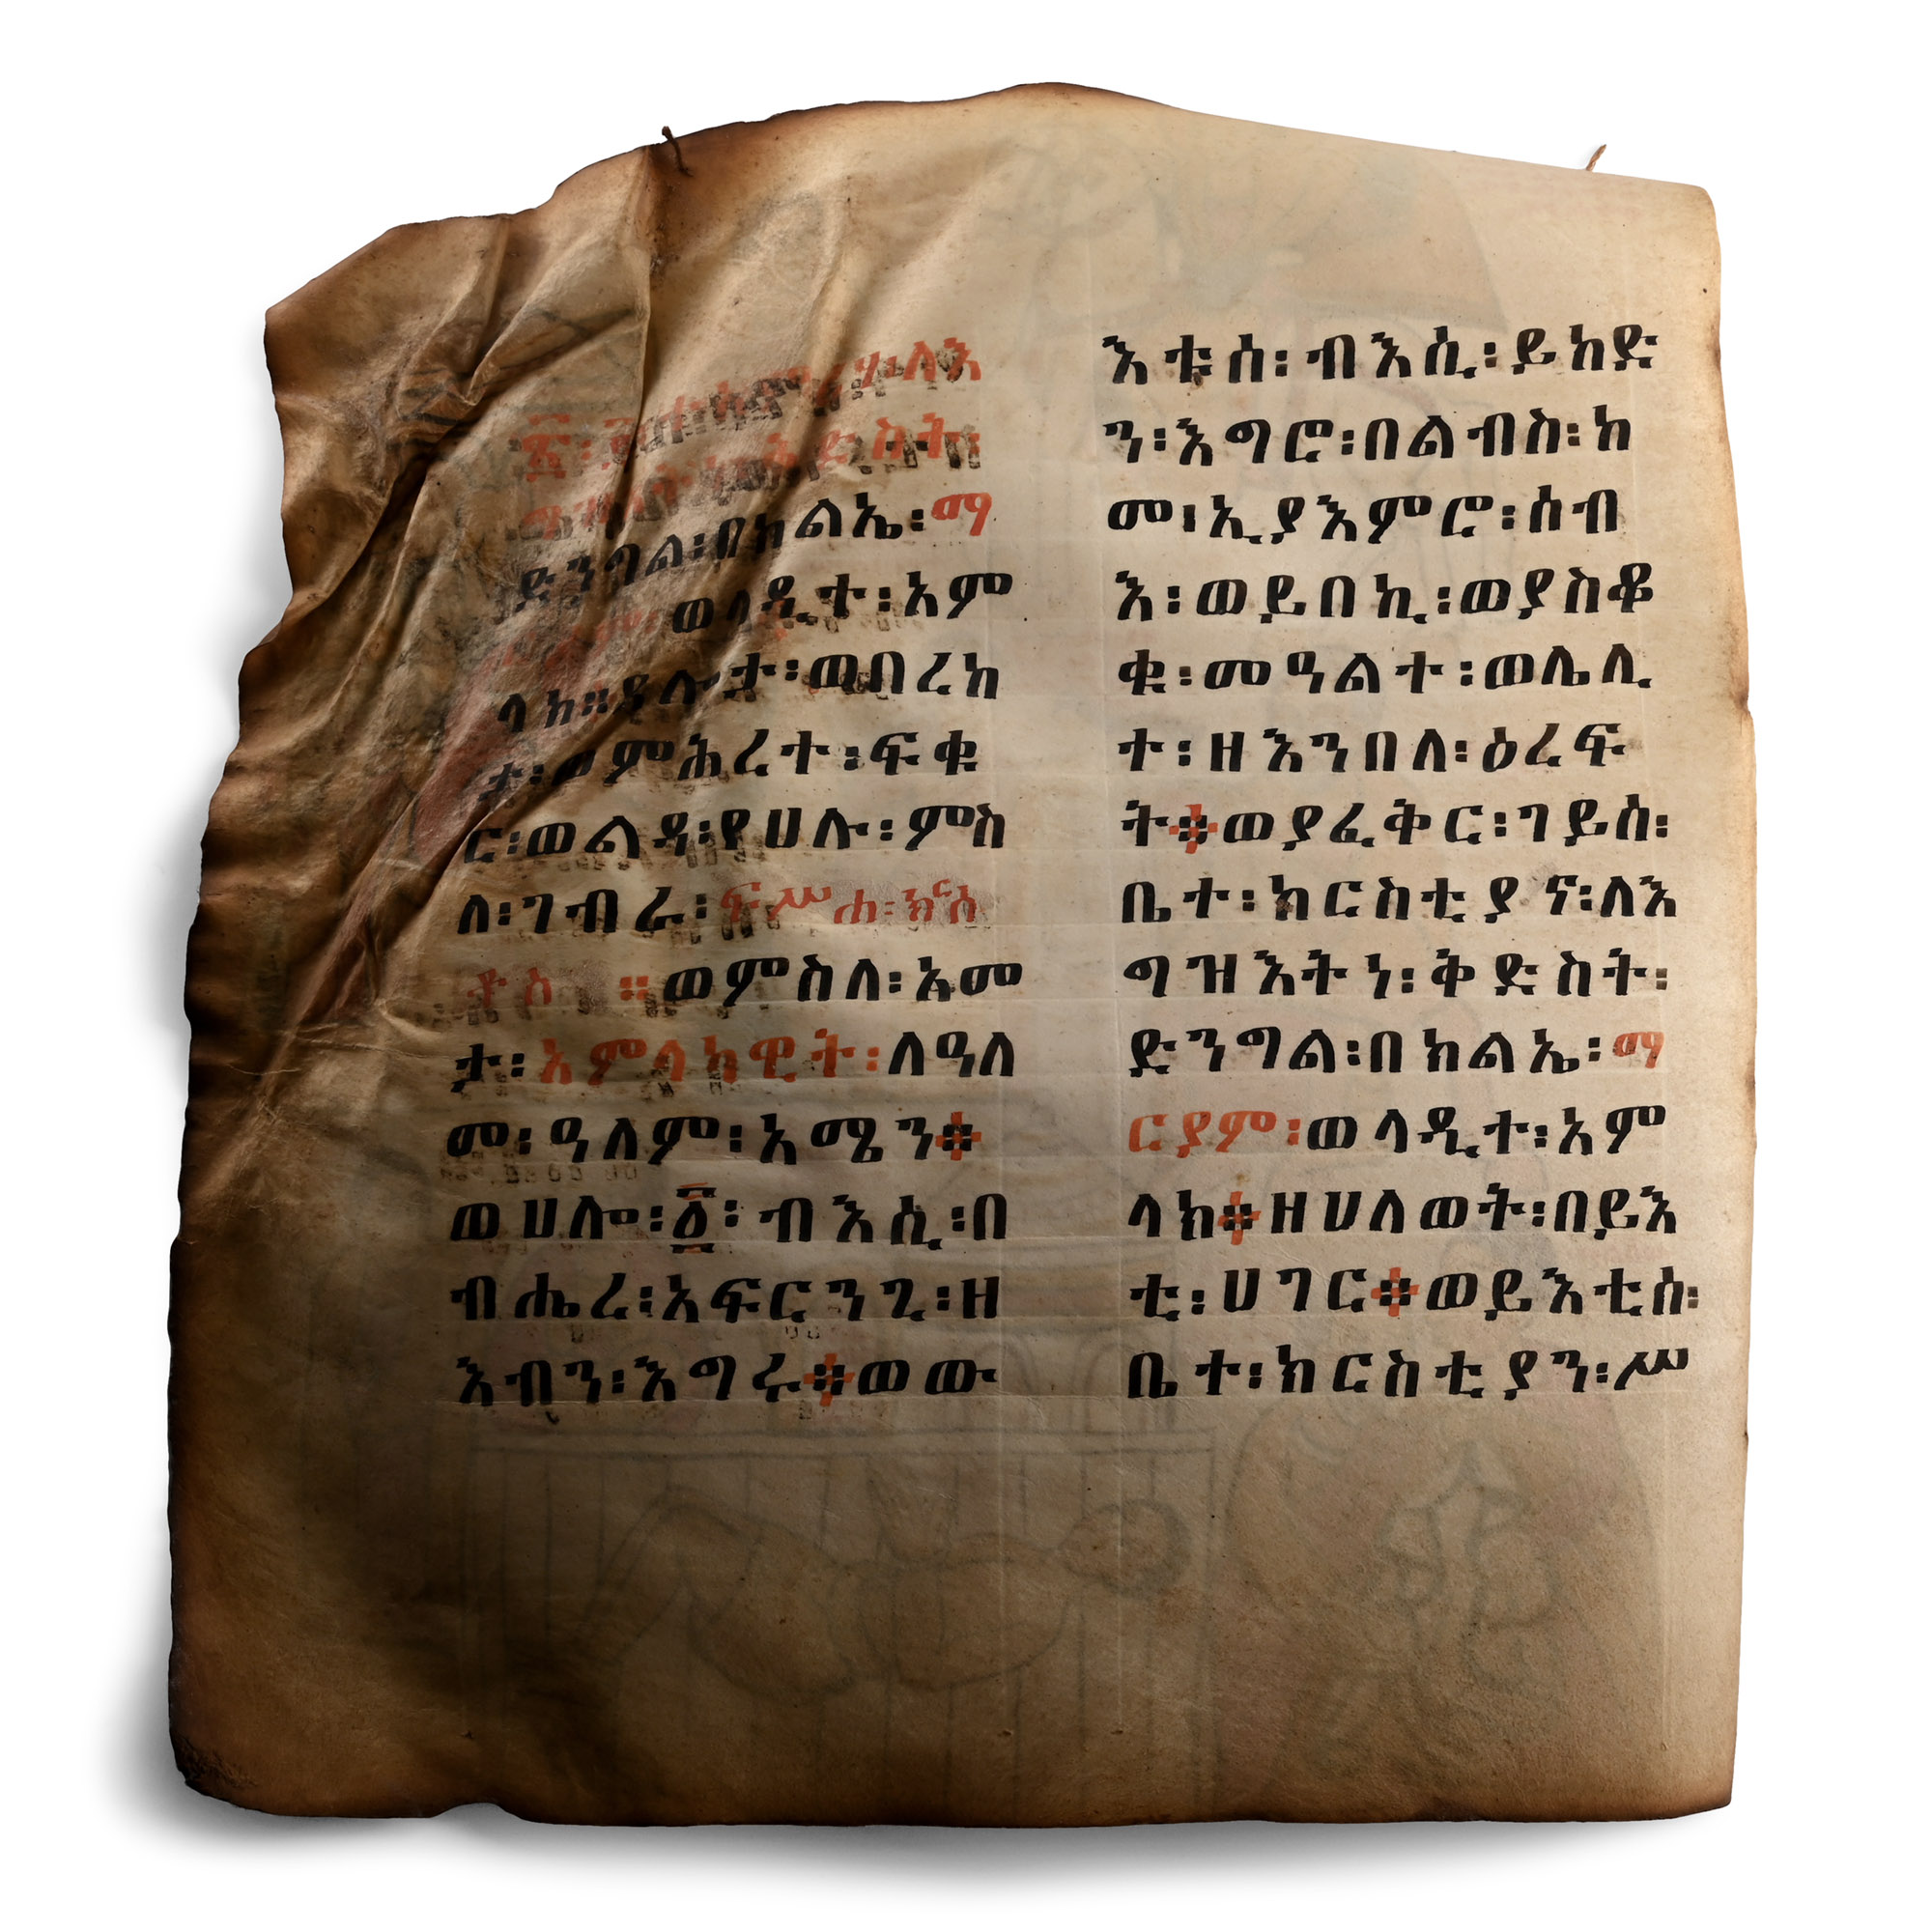 ድንግል፡በክልኤ፡ማ
ወላዲተ፡አም
ላክ፡፡ጸሎታ፡ወበረከ
ታ፡ወምሕረተ፡ፍቁ
ር፡ወልዳ፡የሀሉ፡ምስ
ለ፡ገብራ፡ፍሥሐ፡ክርስ
ቶስ ። ወምስለ፡አመ
ታ፡አምላካዊት፡ለዓለ
መ፡ዓለም፡አሜን፨
ወሀሎ፡፩፡ብእሲ፡በ
ብሔረ፡አፍርንጊ፡ዘ
እብን፡እግሩ፨ወው
እቱሰ፡ብእሲ፡ይከድ
ን፡እግሮ፡በልብስ፡ከ
መ፡ኢያእምሮ፡ሰብ
እ፡ወይበኪ፡ወያስቆ
ቁ፡መዓልተ፡ወሌሊ
ተ፡ዘእንበለ፡ዕረፍ
ት፨ወያፈቅር፡ገይሰ፡
ቤተ፡ክርስቲያና፡ለእ
ግዝእትነ፡ቅድስት፡
ድንግል፡በክልኤ፡ማ
ርያም፡ወላዲተ፡አም
ላክ፨ዘሀለወት፡በይእ
ቲ፡ሀገር፨ወይእቲሰ፡
ቤተ፡ክርስቲያን፡ሥ